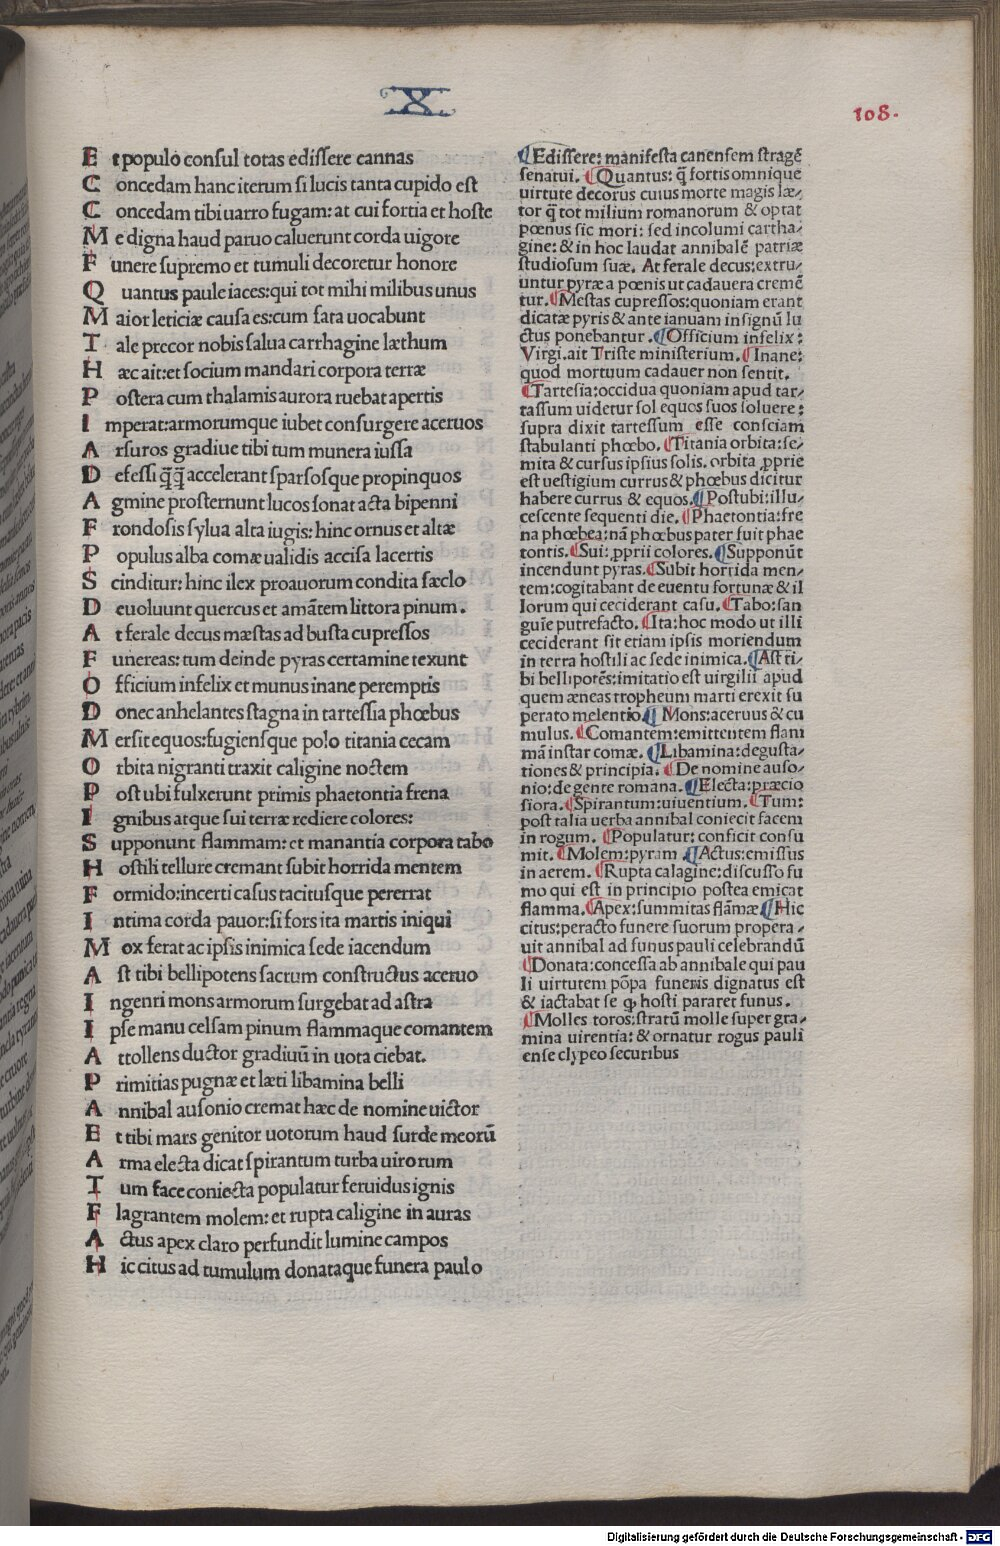 X
108.
Et populo consul totas edissere cannas
Concedam hanc iterum si lucis tanta cupido est
Concedam tibi uarro fugam: at cui fortia et hoste
Me digna haud paruo caluerunt corda uigore
Funere supremo et tumuli decoretur honore
Quantus paule iaces: qui tot mihi milibus unus
Maior leticiæ causa es: cum fata uocabunt
Tale precor nobis salua carthagine læthum
Hæc ait: et socium mandari corpora terræ
Postera cum thalamis aurora ruebat apertis
Imperat: armorumque iubet consurgere aceruos
Arsuros gradiue tibi tum munera iussa
Defessi q̄q̄ accelerant sparsosque propinquos
Agmine prosternunt lucos sonat acta bipenni
Frondosis sylua alta iugis: hinc ornus et altæ
Populus alba comæ ualidis accisa lacertis
Scinditur: hinc ilex proauorum condita sæclo
Deuoluunt quercus et amātem littora pinum.
At ferale decus mæstas ad busta cupressos
Funereas: tum deinde pyras certamine texunt
Officium infelix et munus inane peremptis
Donec anhelantes stagna in tartessia phœbus
Mersit equos: fugiensque polo titania cecam
Orbita nigranti traxit caligine noctem
Post ubi fulxerunt primis phaetontia frena
Ignibus atque sui terræ rediere colores:
Supponunt flammam: et manantia corpora tabo
Hostili tellure cremant subit horrida mentem
Formido: incerti casus tacitusque pererrat
Intima corda pauor: si fors ita martis iniqui
Mox ferat ac ipsis inimica sede iacendum
Ast tibi bellipotens sacrum constructus aceruo
Ingenri mons armorum surgebat ad astra
Ipse manu celsam pinum flammaque comantem
Attollens ductor gradiuū in uota ciebat.
Primitias pugnæ et læti libamina belli
Annibal ausonio cremat hæc de nomine uictor
Et tibi mars genitor uotorum haud surde meorū
Arma electa dicat spirantum turba uirorum
Tum face coniecta populatur feruidus ignis
Flagrantem molem: et rupta caligine in auras
Actus apex claro perfundit lumine campos
Hic citus ad tumulum donataque funera paulo
¶Edissere: manifesta canensem stragē
senatui. ¶Quantus: q̄ fortis omnique
uirtute decorus cuius morte magis læ-
tor q̄ tot milium romanorum & optat
pœnus sic mori: sed incolumi cartha-
gine: & in hoc laudat annibalē patriæ
studiosum suæ. At ferale decus: extru-
untur pyræ a pœnis ut cadauera cremē
tur. ¶Mestas cupressos: quoniam erant
dicatæ pyris & ante ianuam insignū lu
ctus ponebantur. ¶Officium infelix:
Virgi. ait Triste ministerium. ¶Inane:
quod mortuum cadauer non sentit.
¶Tartesia: occidua quoniam apud tar-
tassum uidetur sol equos suos soluere:
supra dixit tartessum esse consciam
stabulanti phœbo. ¶Titania orbita: se-
mita & cursus ipsius solis. orbita ꝓprie
est uestigium currus & phœbus dicitur
habere currus & equos. ¶Postubi: illu-
cescente sequenti die. ¶Phaetontia: fre
na phœbea: nā phœbus pater fuit phae
tontis. ¶Sui: ꝓprii colores. ¶Supponūt
incendunt pyras. ¶Subit horrida men-
tem: cogitabant de euentu fortunæ & il
lorum qui ceciderant casu. ¶Tabo: san
guīe putrefacto. ¶Ita: hoc modo ut illi
ceciderant sit etiam ipsis moriendum
in terra hostili ac sede inimica. ¶Ast ti-
bi bellipotēs: imitatio est uirgilii apud
quem æneas tropheum marti erexit su
perato melentio. ¶Mons: aceruus & cu
mulus. ¶Comantem: emittentem flam
mā instar comæ. ¶Libamina: degusta-
tiones & principia. ¶De nomine auso-
nio: de gente romana. ¶Electa: præcio
siora. ¶Spirantum: uiuentium. ¶Tum:
post talia uerba annibal coniecit facem
in rogum. ¶Populatur: conficit consu
mit. ¶Molem: pyram ¶Actus: emissus
in aerem. ¶Rupta calagine: discusso fu
mo qui est in principio postea emicat
flamma. ¶Apex: summitas flāmæ ¶Hic
citus: peracto funere suorum propera-
uit annibal ad funus pauli celebrandū
¶Donata: concessa ab annibale qui pau
li uirtutem pōpa funeris dignatus est
& iactabat se ꝙ hosti pararet funus.
¶Molles toros: stratū molle super gra-
mina uirentia: & ornatur rogus pauli
ense clypeo securibus
Digitalisierung gefördert durch die Deutsche Forschungsgemeinschaft - DFG